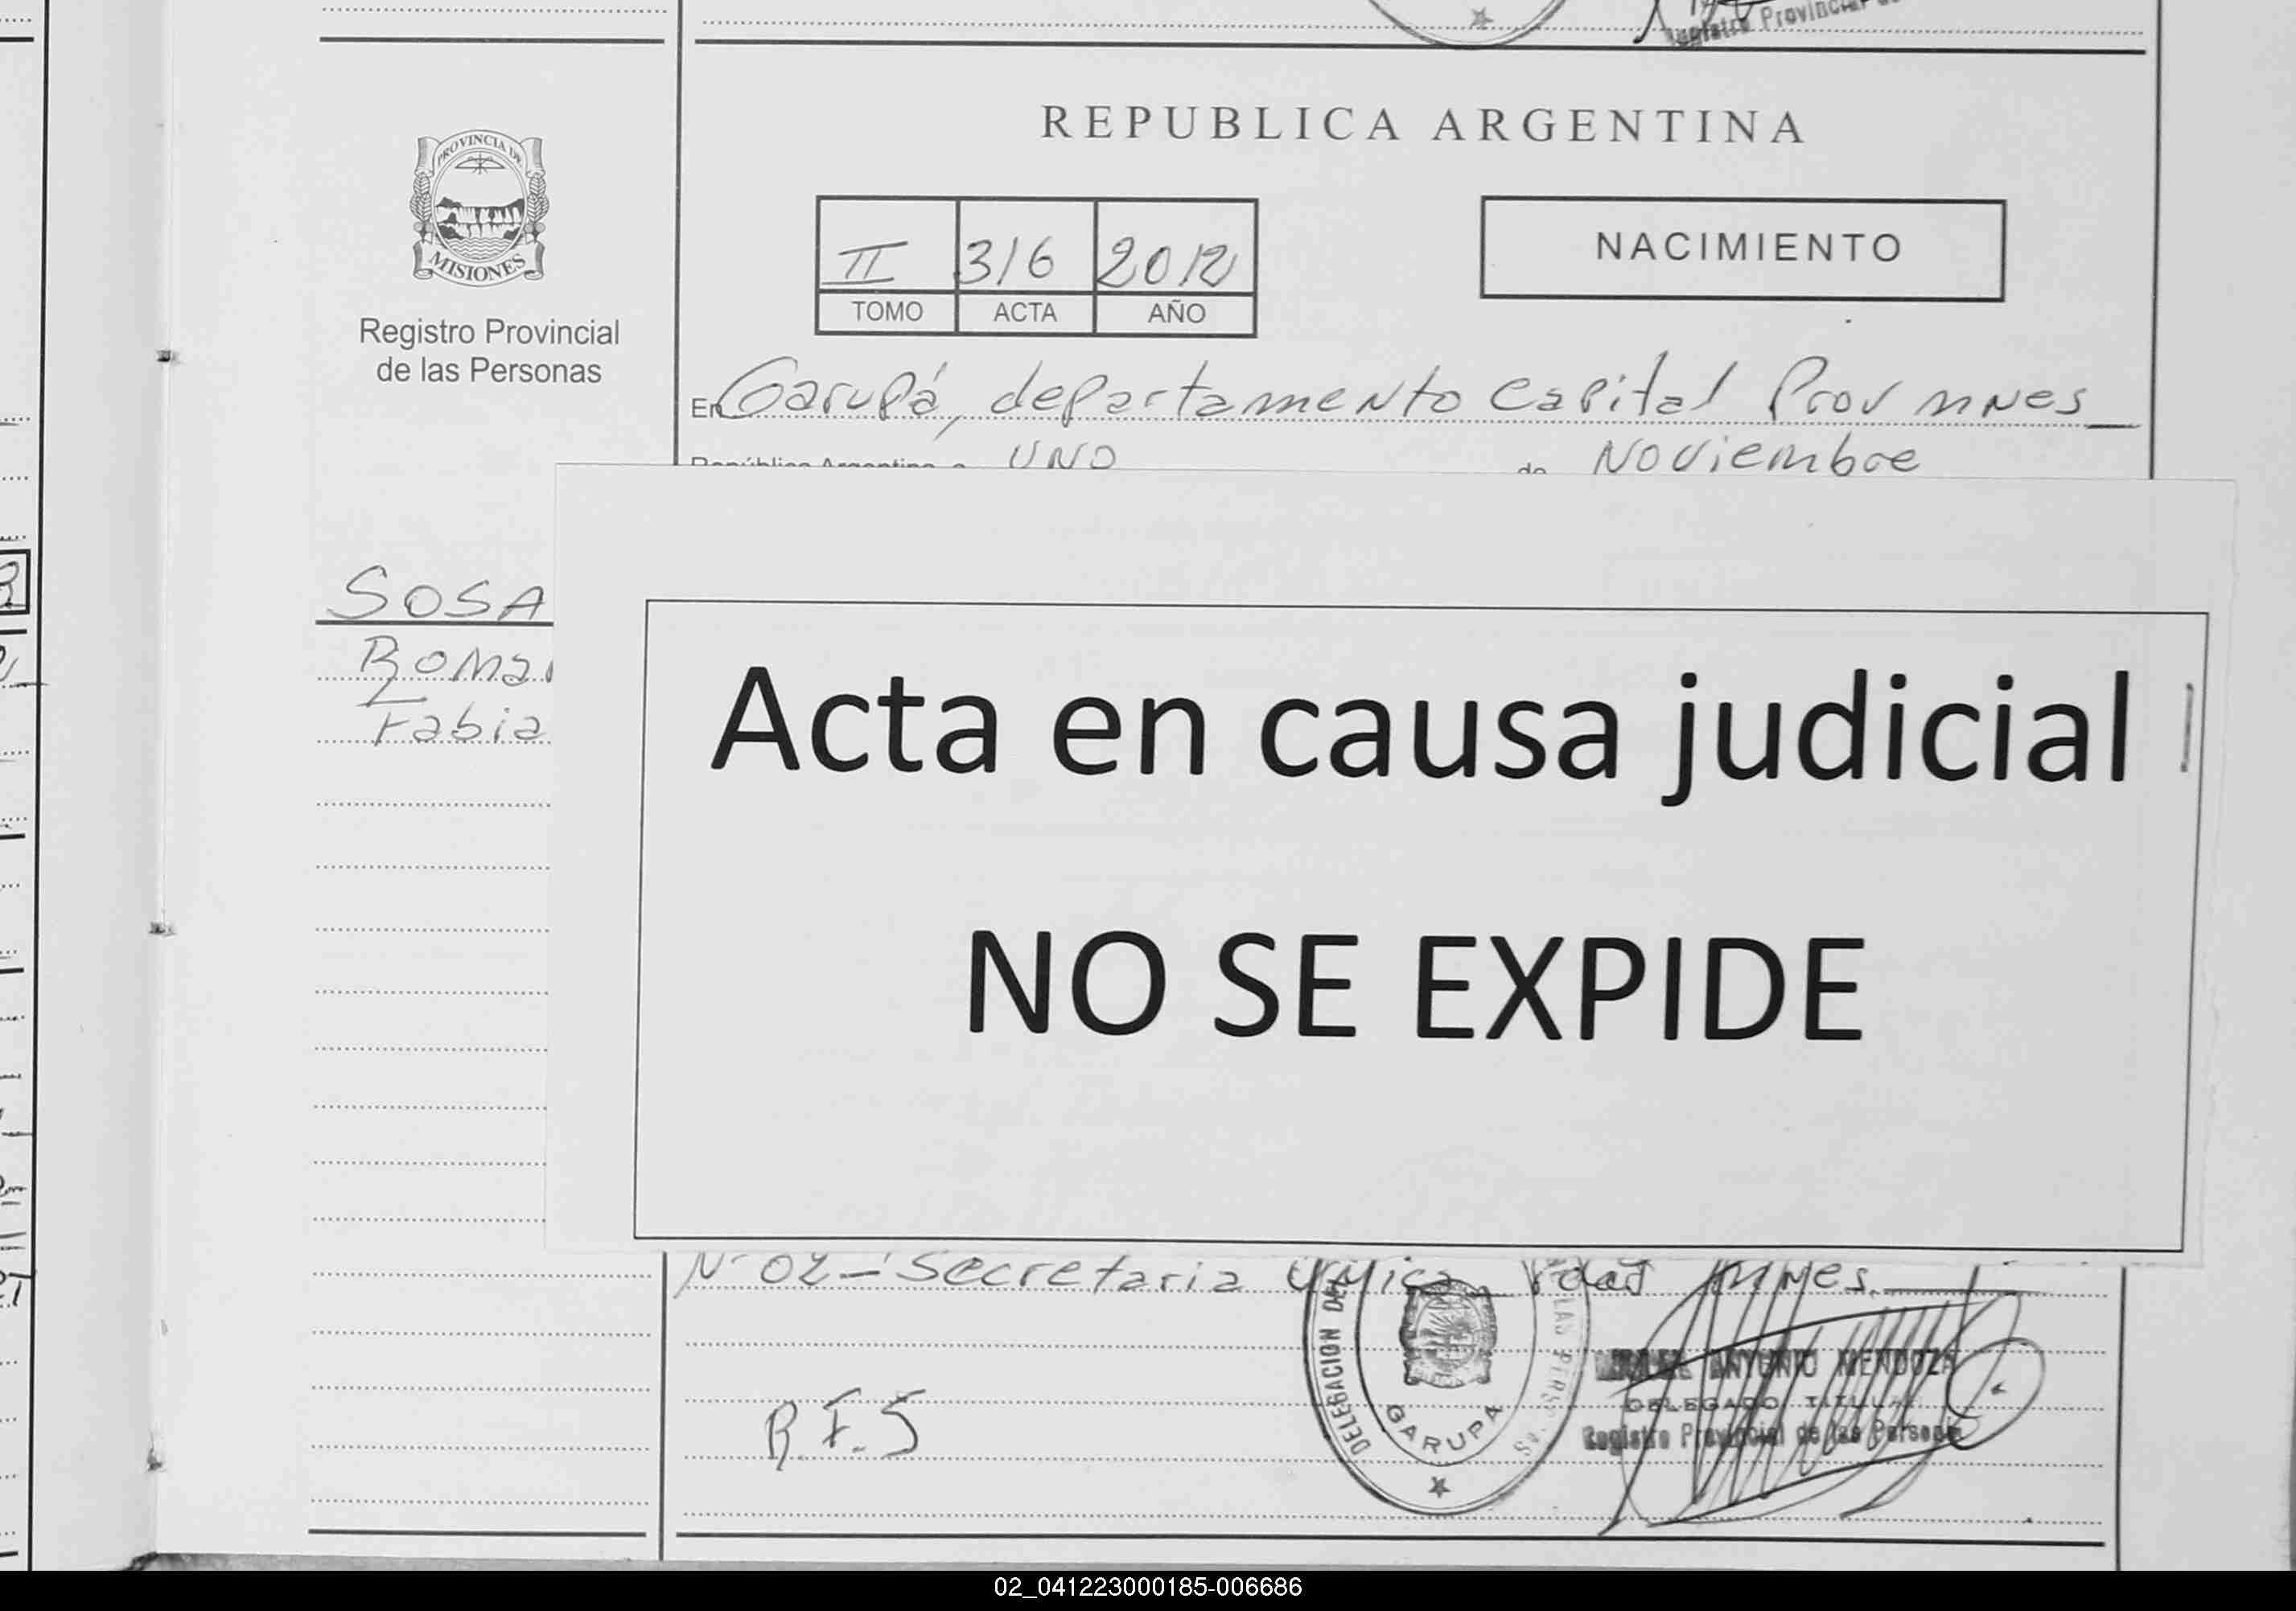 Registro Provincial
REPUBLICA ARGENTINA
PROVINCIA DE
MISIONES
Registro Provincial
de las Personas
II 316 2012
TOMO ACTA AÑO
NACIMIENTO
En Garupá, departamento Capital Prov mnes
República Argentina, a uno de Noviembre
SOSA
Roma
Fabia
Acta en causa judicial
NO SE EXPIDE
Nº 02 - Secretaria Unica Pdas Mnes.
R.F.S
DELEGACION DEL
LAS PERSONAS
GARUPA
ANTONIO MENDOZA
DELEGADO TITULAR
Registro Provincial de las Personas
02_041223000185-006686